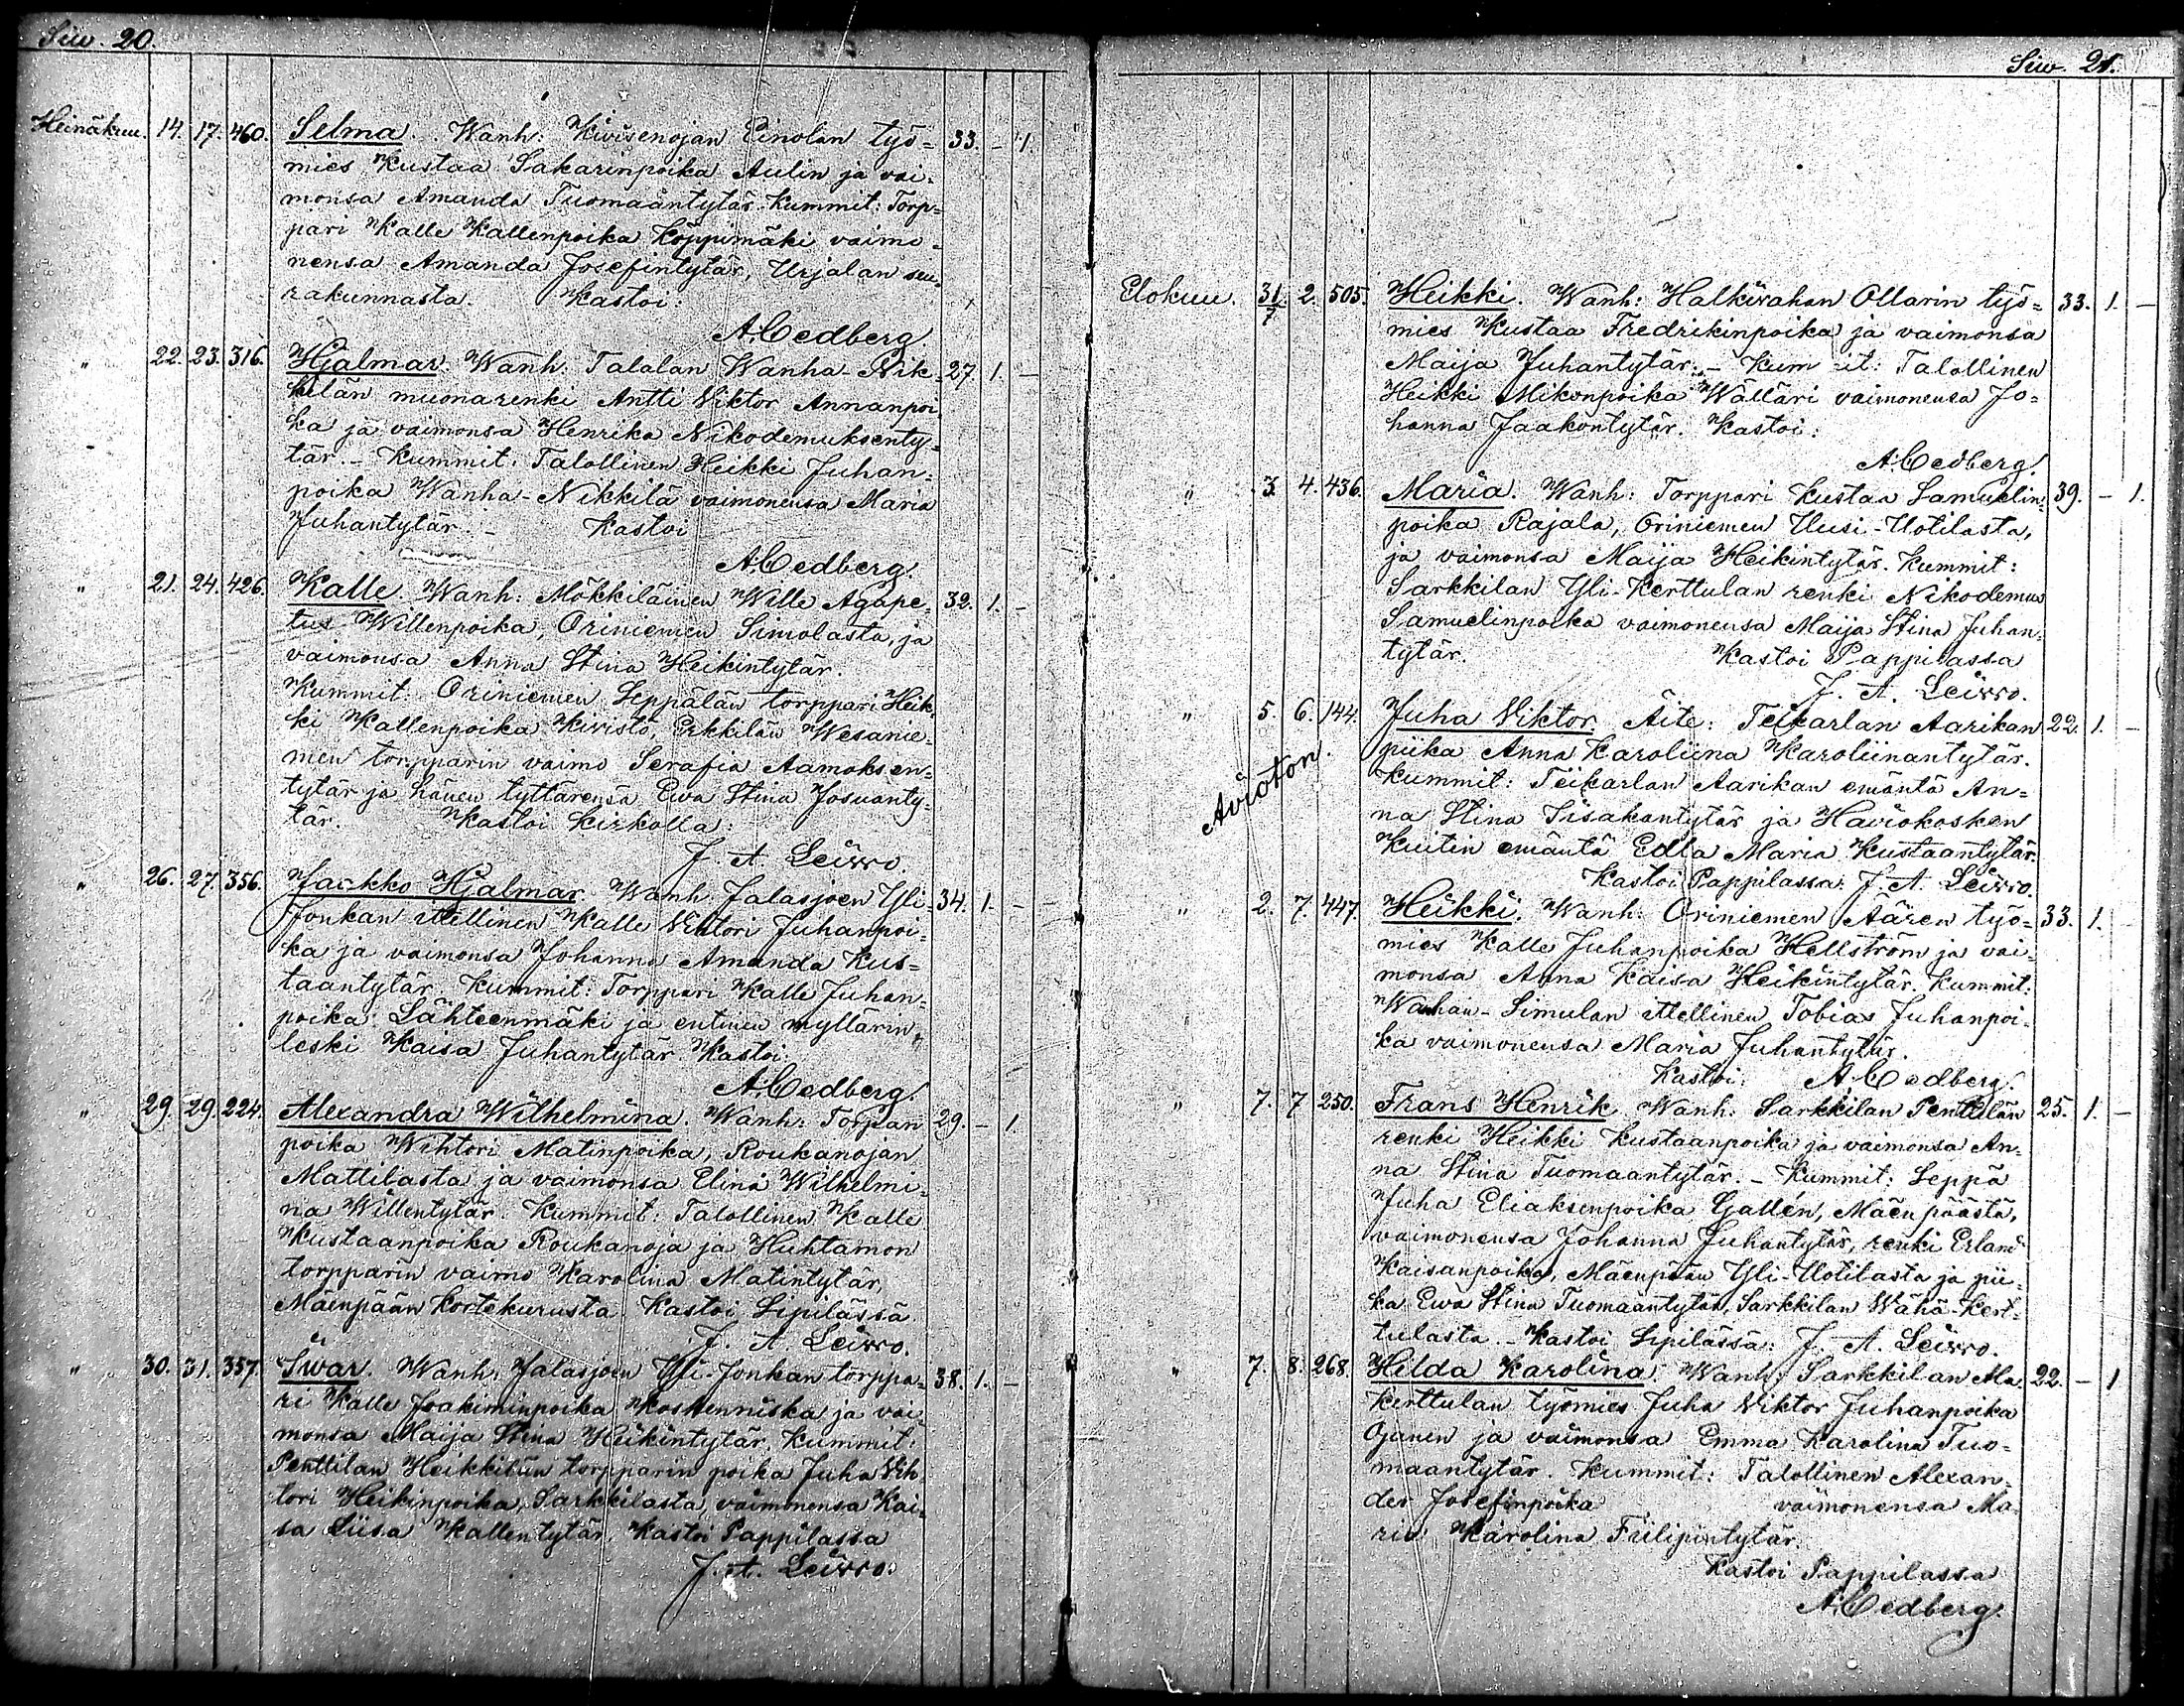 Siw. 20.
Heinäkuu. 14. 17. 460. Selma. Wanh: Kivisenojan Einolan työ= 33. – 1.
mies Kustaa Sakarinpoika Aulin ja vai=
monsa Amanda Tuomaantytär. Kummit: Torp=
pari Kalle Kallenpoika Köppimäki vaimo=
nensa Amanda Josefintytär, Urjalan seu=
rakunnasta. Kastoi:
A. Cedberg.
" 22. 23. 316. Hjalmar. Wanh: Talalan Wanha-Nik= 27. 1. –
kilän muonarenki Antti Viktor Annanpoi=
ka ja vaimonsa Henrika Nikodemuksenty=
tär. – Kummit: Talollinen Heikki Juhan=
poika Wanha-Nikkilä vaimonensa Maria
Juhantytär. – Kastoi
A. Cedberg.
" 21. 24. 426. Kalle. Wanh: Mökkiläinen Wille Agape= 32. 1. –
tus Willenpoika, Oriniemen Simolasta, ja
vaimonsa Anna Stina Heikintytär.
Kummit: Oriniemen Seppälän torppari Heik=
ki Kallenpoika Kivistö, Erkkilän Wesanie=
men torpparin vaimo Serafia Aamoksen=
tytär ja hänen tyttärensä Ewa Stina Josuanty=
tär. Kastoi Kirkolla:
J. A. Leivvo.
" 26. 27. 356. Jaakko Hjalmar. Wanh. Jalasjoen Yli= 34. 1. –
Jonkan itellinen Kalle Vihtori Juhanpoi=
ka ja vaimonsa Johanna Amanda Kus=
taantytär. Kummit: Torppari Kalle Juhan=
poika Lähteenmäki ja entinen myllärin
leski Kaisa Juhantytär. Kastoi:
A. Cedberg.
" 29. 29. 224. Alexandra Wilhelmina. Wanh: Torpan 29. – 1.
poika Wihtori Matinpoika, Roukanojan
Mattilasta ja vaimonsa Elina Wilhelmi=
na Willentytär. Kummit: Talollinen Kalle
Kustaanpoika Roukanoja ja Huhtamon
torpparin vaimo Karolina Matintytär,
Mäenpään Kortekurusta. Kastoi Sipilässä
J. A. Leivvo.
" 30. 31. 357. Iwar. Wanh: Jalasjoen Yli-Jonkan torppa= 38. 1. –
ri Kalle Joakiminpoika Koskenniska ja vai=
monsa Maija Stina Heikintytär. Kummit:
Penttilän Heikkilän torpparin poika Juha Vih=
tori Heikinpoika, Sarkkilasta, vaimonensa Kai=
sa Liisa Kallentytär. Kastoi Pappilassa
J. A. Leivvo.
Siw. 21.
Elokuu. 31/7 2. 505. Heikki. Wanh: Halkivahan Ollarin työ= 33. 1. –
mies Kustaa Fredrikinpoika ja vaimonsa
Maija Juhantytär. – Kum it: Talollinen
Heikki Mikonpoika Wälläri vaimonensa Jo=
hanna Jaakontytär. Kastoi:
A. Cedberg.
" 3. 4. 436. Maria. Wanh: Torppari Kustaa Samuelin= 39. – 1.
poika Rajala, Oriniemen Uusi-Uotilasta,
ja vaimonsa Maija Heikintytär. Kummit:
Sarkkilan Yli-Kerttulan renki Nikodemus
Samuelinpoika vaimonensa Maija Stina Juhan=
tytär. Kastoi Pappilassa
J. A. Leivvo.
" 5. 6. 144. Juha Viktor. Äite: Teikarlan Aarikan 22. 1. –
Aviöton. piika Anna Karoliina Karoliinantytär.
Kummit: Teikarlan Aarikan emäntä An=
na Stina Iisakantytär ja Haviokosken
Kuitin emäntä Edla Maria Kustaantytär.
Kastoi Pappilassa: J. A. Leivvo.
" 2. 7. 447. Heikki. Wanh: Oriniemen Aären työ= 33. 1.
mies Kalle Juhanpoika Hellström ja vai=
monsa Anna Kaisa Heikintytär. Kummit:
Wanhan-Simulan itellinen Tobias Juhanpoi=
ka vaimonensa Maria Juhantytär.
Kastoi: A. Cedberg.
" 7. 7 250. Frans Henrik. Wanh: Sarkkilan Penttilän 25. 1. –
renki Heikki Kustaanpoika ja vaimonsa An=
na Stina Tuomaantytär. – Kummit: Seppä
Juha Eliaksenpoika Gallén, Mäenpäästä,
vaimonensa Johanna Juhantytär, renki Erland
Kaisanpoika, Mäenpään Yli-Uotilasta ja pii=
ka Ewa Stina Tuomaantytär, Sarkkilan Wähä-Kert=
tulasta. – Kastoi Sipilässä: J. A. Leivvo.
" 7. 8. 268. Hilda Karolina. Wanh: Sarkkilan Ala= 22. – 1
Kerttulan työmies Juha Viktor Juhanpoika
Ojanen ja vaimonsa Emma Karolina Tuo=
maantytär. Kummit: Talollinen Alexan=
der Josefinpoika vaimonensa Ma=
ria Karolina Fiilipintytär.
Kastoi Pappilassa
A. Cedberg.